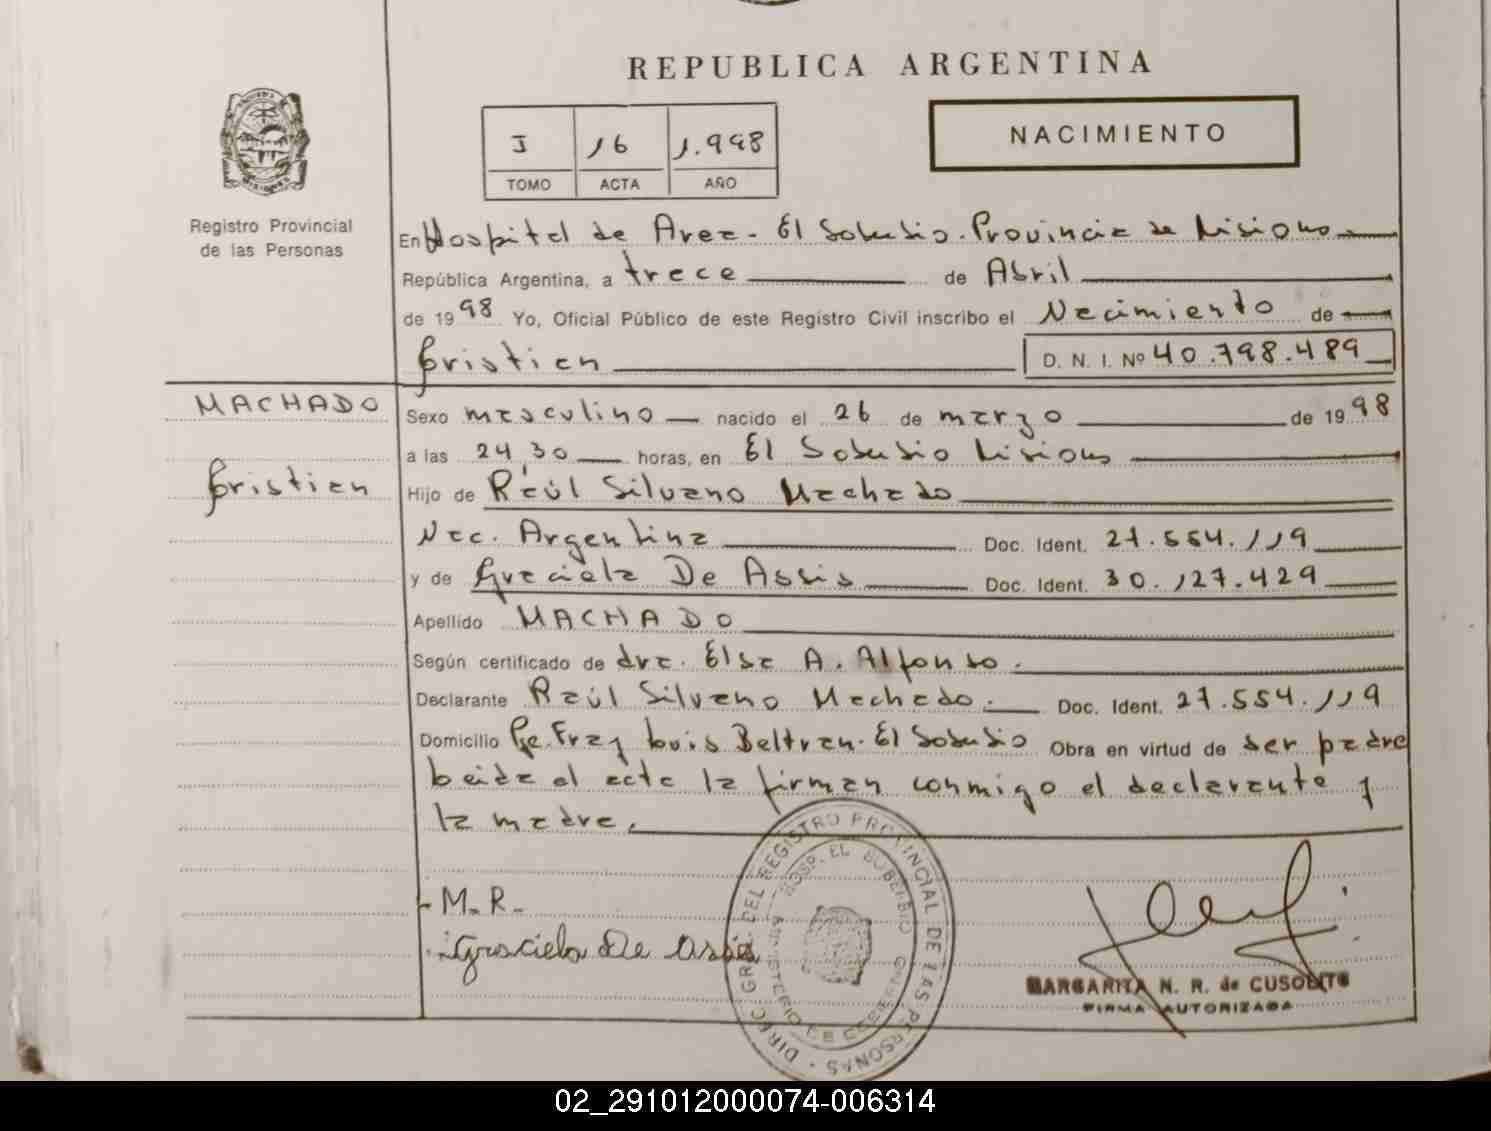 REPUBLICA ARGENTINA
I 16 1.998
TOMO ACTA AÑO
NACIMIENTO
Registro Provincial
de las Personas
En Hospital de Area - El Soberbio - Provincia de Misiones
República Argentina, a trece de Abril
de 1998 Yo, Oficial Público de este Registro Civil inscribo el Nacimiento de
Cristian D. N. I. Nº 40.798.489
MACHADO
Cristian
Sexo masculino nacido el 26 de marzo de 1998
a las 24,30 horas, en El Soberbio Misiones
Hijo de Raúl Silvano Machado
Nac. Argentina Doc. Ident. 27.554.119
y de Graciela De Assis Doc. Ident. 30.127.429
Apellido MACHADO
Según certificado de dra. Elsa A. Alfonso.
Declarante Raúl Silvano Machado. Doc. Ident. 27.554.119
Domicilio Pje. Fray Luis Beltran - El Soberbio Obra en virtud de ser padre
Leida el acta la firman conmigo el declarante y
la madre.
- M. R. -
Graciela De Assis
DIREC. GRAL. DEL REGISTRO PROVINCIAL DE LAS PERSONAS
HOSP. EL SOBERBIO
MINISTERIO DE GOBIERNO
MARGARITA N. R. de CUSOLITO
FIRMA AUTORIZADA
02_291012000074-006314